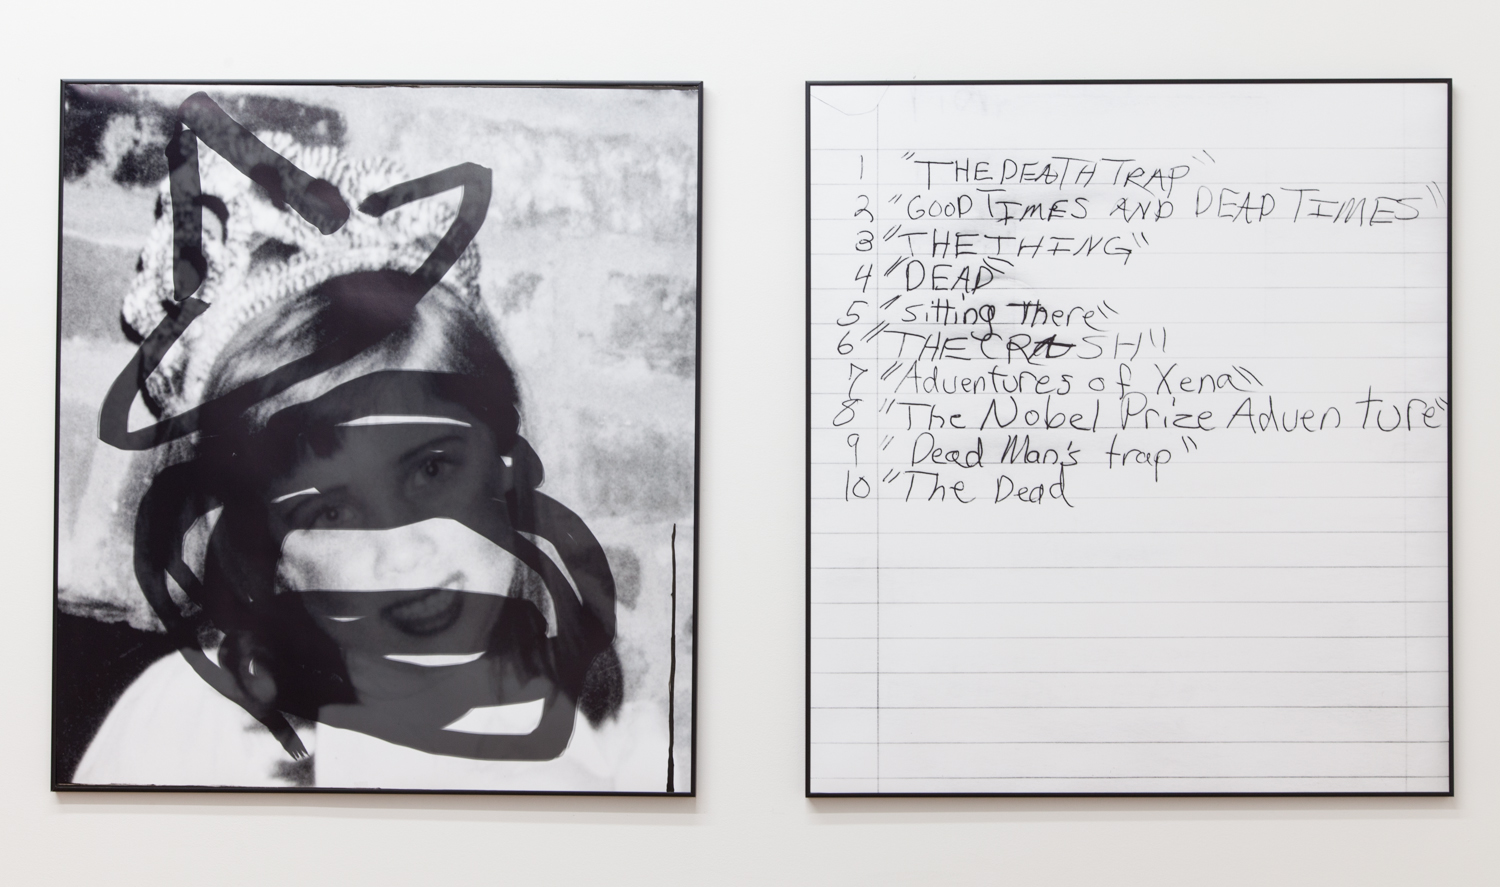 1 "THE DEATH TRAP"
2 "GOOD TIMES AND DEAD TIMES"
3 "THE THING"
4 "DEAD"
5 "Sitting There"
6 "THE CRASH"
7 "Adventures of Xena"
8 "The Nobel Prize Adventure"
9 "Dead Man's trap"
10 "The Dead